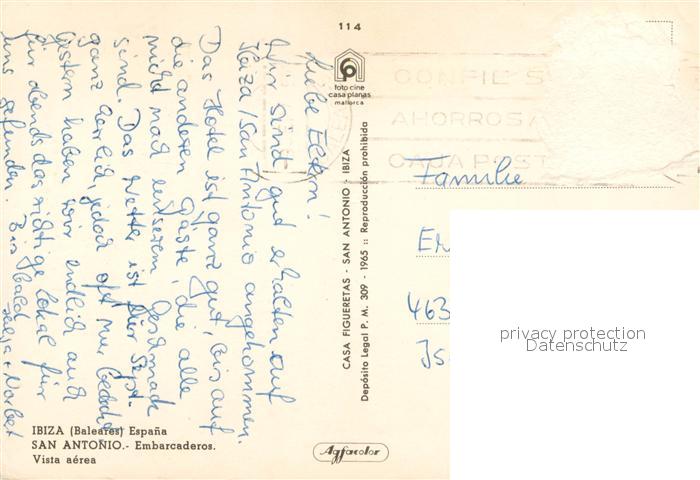 114
foto cine
casa planas
mallorca
CONFIE S
AHORROS A
CAJA POST
Liebe Eltern!
Wir sind gut erhalten auf
Ibiza/San Antonio angekommen.
Das Hotel ist ganz gut, bis auf
die anderen Gäste, die alle
nicht nach unserem Geschmack
sind. Das Wetter ist für Sept.
ganz herrlich, jedoch oft nur bedeckt
Gestern haben wir endlich auch
für abends das richtige Lokal für
uns gefunden. Bis bald
Helga + Norbert
CASA FIGUERETAS - SAN ANTONIO - IBIZA
Depósito Legal P. M. 309 - 1965 :: Reproducción prohibida
Familie
463
privacy protection
Datenschutz
IBIZA (Baleares) España
SAN ANTONIO.- Embarcaderos.
Vista aérea
Agfacolor